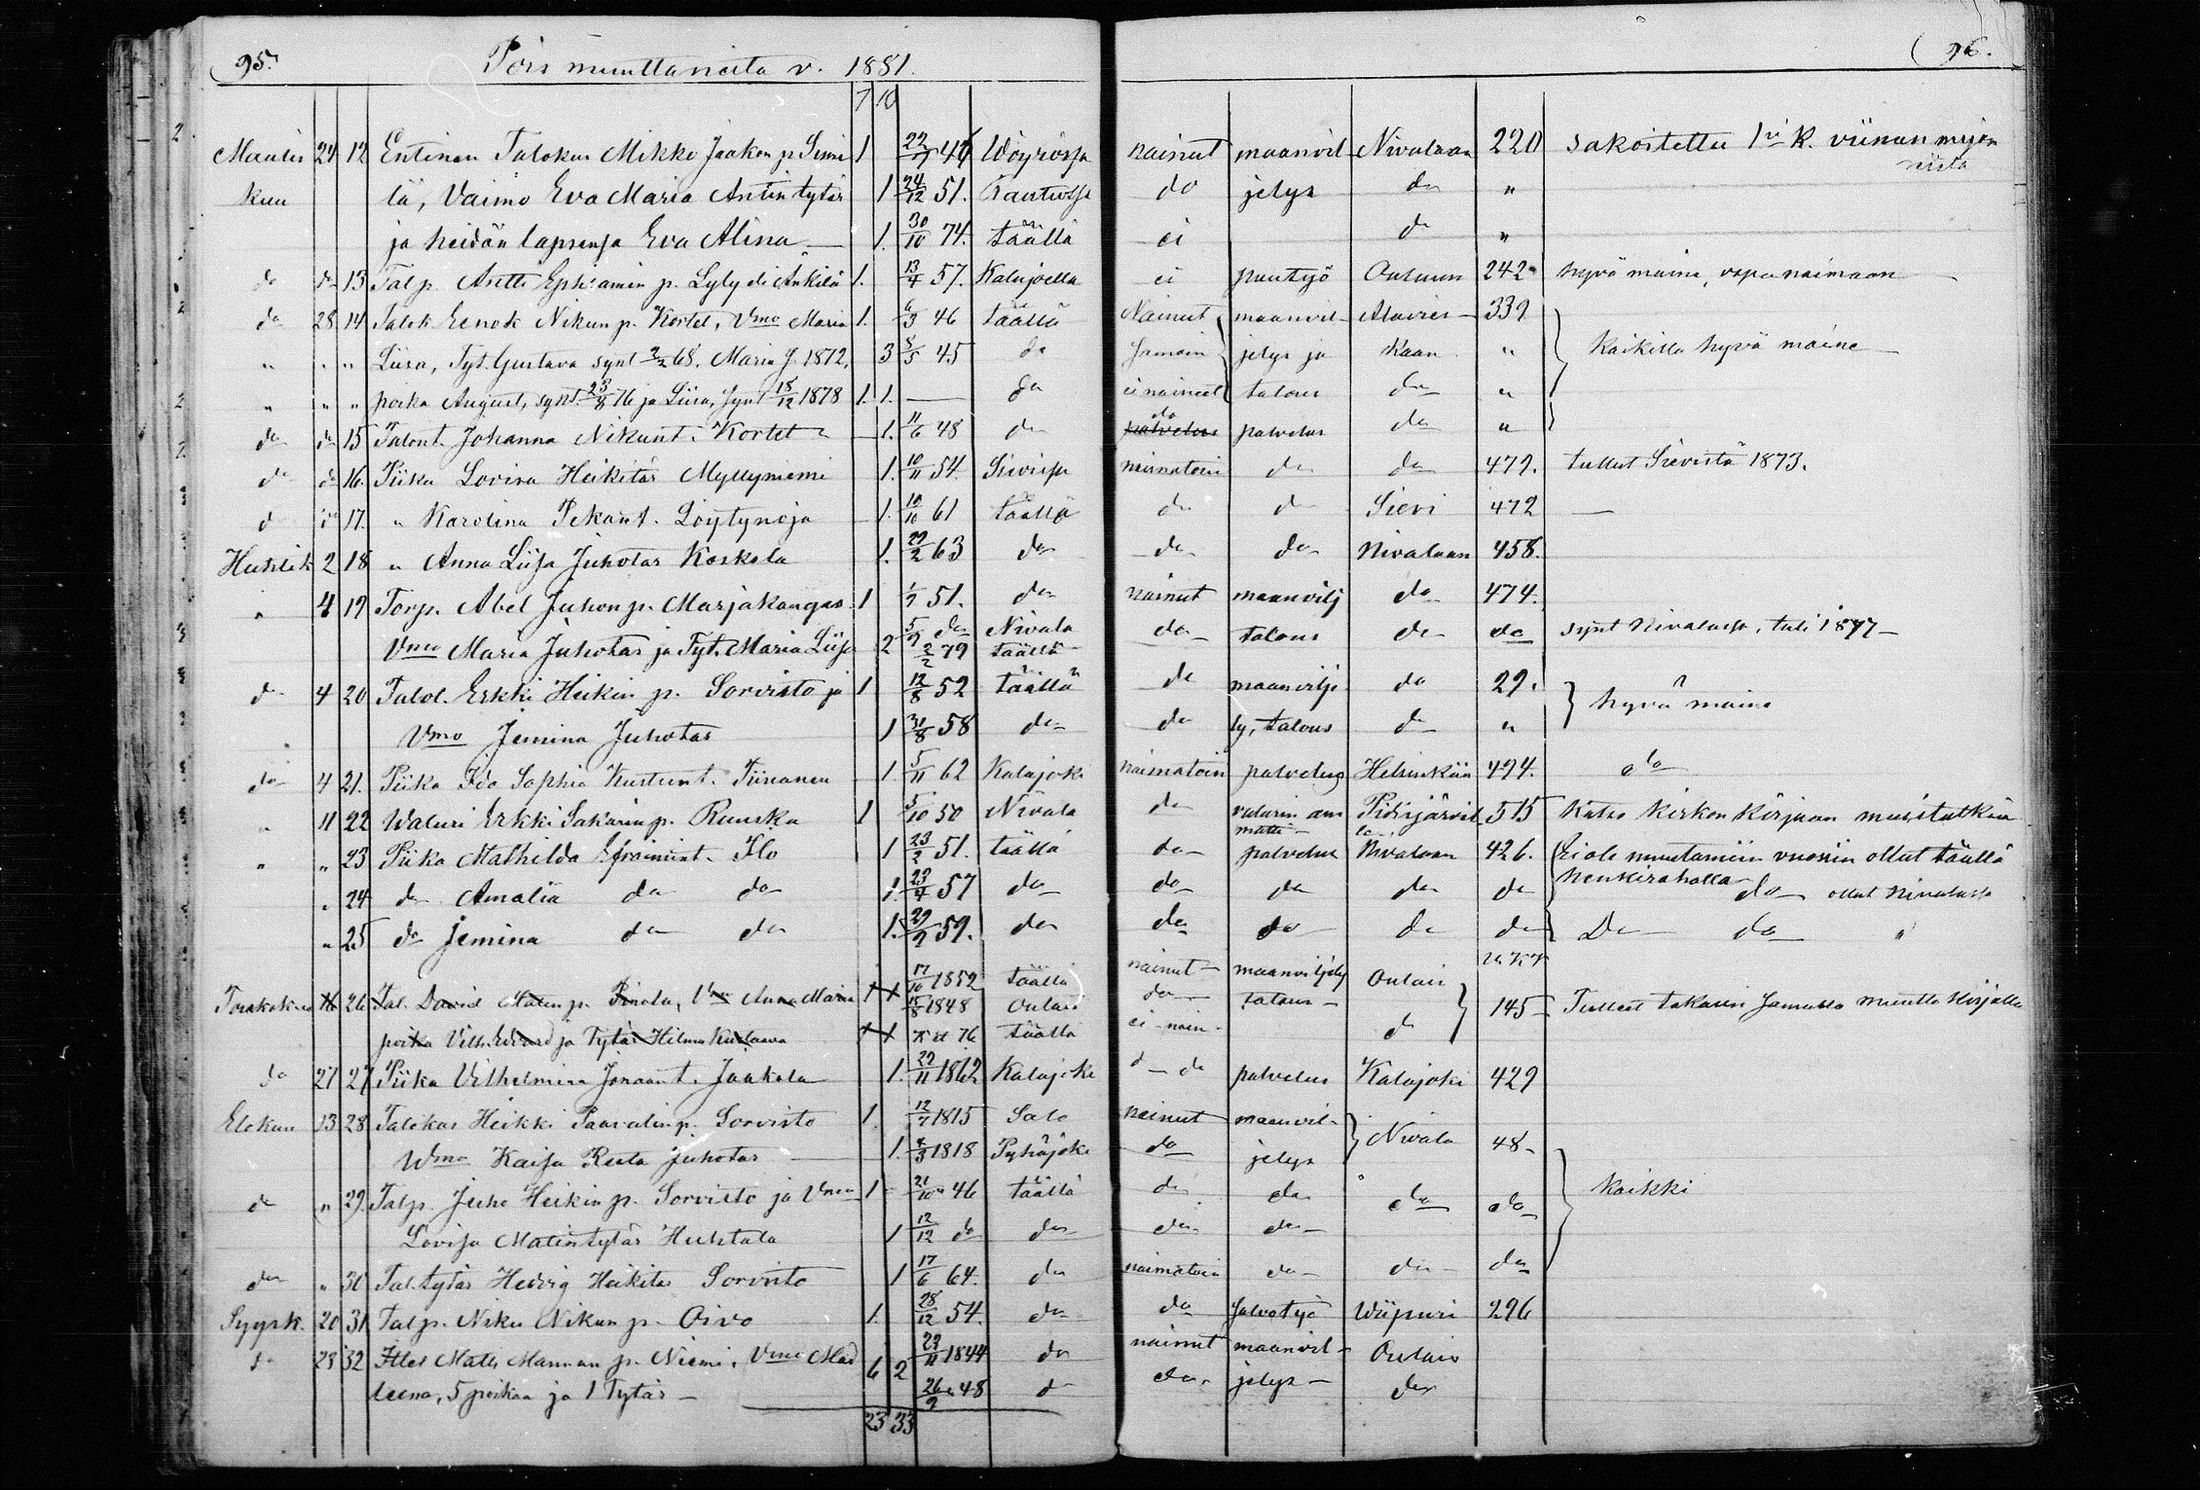 95. Pois muuttaneita v. 1881. 96.
7 10
Maalis 24 12 Entinen Talokas Mikko Jaakon p. Simi 1 22/7 46 Wöyrissä nainut maanvil Nivalaan 220 sakoitettu 1:n k. viinan myön
kuu lä, Vaimo Eva Maria Antintytär 1 24/12 51. Rautiossa do jelys do " nistä
ja heidän lapsensa Eva Alina — 1. 30/10 74. täällä ei do "
do do 13 Talp. Antti Ephraimin p. Lyly eli Änkilä 1. 13/4 57. Kalajoella ei puutyö Ouluun 242 hyvä maine, vapa naimaan
do 28 14 Talok Eenok Nikun p. Kortet, Vmo Maria 1. 6/3 46 täällä Nainut maanvil- Alavies- 339
" " " Liisa, Tyt. Gustava synt 2/2 68, Maria J. 1872, 3 8/5 45 do Samoin jelys ja kaan " Kaikilla hyvä maine
" " " poika August, synt. 23/8 76 ja Liisa, synt 18/12 1878 1. 1. — do ei naineet talous do "
do do 15 Talont. Johanna Nikunt. Kortet 1. 11/6 48 do do palvelus palvelus do "
do do 16. Piika Lovisa Heikitär Myllyniemi 1. 10/11 54. Sievissä naimatoin do do 479. tullut Sievistä 1873.
do do 17. " Karolina Pekant. Löytynoja 1. 10/10 61 täällä do do Sievi 472 —
Huhtik 2 18 " Anna Liisa Juhotar Koskela 1. 29/2 63 do do do Nivalaan 458.
" 4 19 Torp. Abel Juhon p. Marjakangas 1 1/7 51. do nainut maanvilj do 474.
Vmo Maria Juhotar ja Tyt. Maria Liisa 2 5/9 do Nivala do talous do do synt Nivalassa, tuli 1877 —
2/2 79 täällä
do 4 20 Talol. Erkki Heikin p. Sorvisto ja 1 12/8 52 täällä do maanvilje do 29. hyvä maine
Vmo Jemina Juhotar 1 31/8 58 do do ly, talous do "
do 4 21. Piika Ida Sophia Kustunt. Tiiranen 1 5/11 62 Kalajoki naimatoin palvelus Helsinkiin 494. do
" 11 22 Waluri Erkki Sakarin p. Ruuska 1 5/10 50 Nivala do valurin am Pidisjärvel 515 Katso kirkon kirjaan muistutksia
matti- le
" " 23 Piika Mathilda Efraimint. Ilo 1 23/2 51. täällä do palvelus Nivalaan 426. Ei ole muutamiin vuosiin ollut täällä
henkirahalla
" 24 do Amalia do do 1. 23/4 57 do do do do do do ollut Nivalassa
" 25 do Jemina do do 1. 29/9 59. do do do do do Do do "
Toukokuu 16 26 Tal. David Matin p. Pinola, Vmo Anna Maria 1 1 17/10 1852 täällä nainut maanviljely Oulais
15/8 1848 Oulais do talous — 145 Tulleet takasin samalla muutto kirjalla
poika Vilh. Edvard ja Tytär Hilma Kustaava 1 1 76 täällä ei nain- do
do 27 27 Piika Vilhelmina Joonaant. Jaakola 1. 29/11 1862 Kalajoki do do palvelus Kalajoki 429
Elokuu 13 28 Talokas Heikki Paavalin p. Sorvisto 1. 12/7 1815 Salo nainut maanvil- Nivala 48
Wmo Kaisa Reeta Juhotar — 1. 4/3 1818 Pyhäjoki do jelys
do " 29. Talp. Juho Heikin p. Sorvisto ja Vmo 1 21/10 46 täällä do do do do Kaikki
Lovisa Matintytär Huhtala 1 12/12 do do do do
do " 30 Tal. tytär Hedvig Heikitär Sorvisto 1 17/6 64. do naimatoin do do do
Syysk. 20 31 Talp. Niku Nikun p. Oivo 1. 28/12 54. do do salvotyö Wiipuri 296
do 28 32 Itlel Matts Mannan p. Niemi, Vmo Mad 6 2 29/11 1844 do nainut maanvil- Oulais
leena, 5 poikaa ja 1 Tytär — 26/9 48 do do. jelys — do
23 33